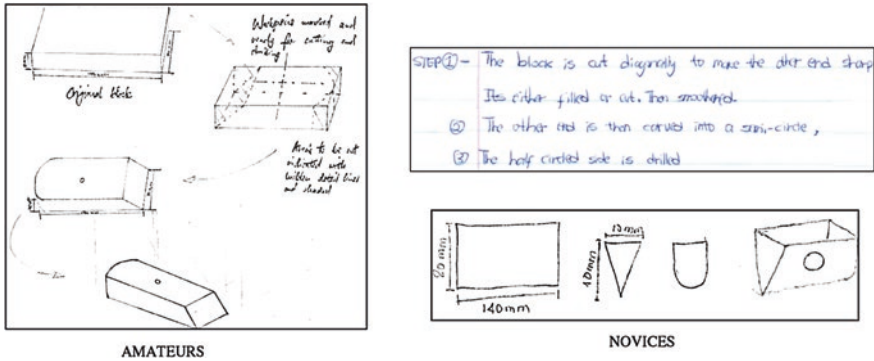 Workpiece marked and
ready for cutting and
Original block
Areas to be cut
indicated with
hidden detail lines
and shaded
AMATEURS
STEP ① - The block is cut diagonally to make the other end sharp
Its either filled or cut. Then smoothened.
② The other end is then carved into a semi-circle,
③ The half circled side is drilled
20mm
140mm
10mm
40mm
NOVICES